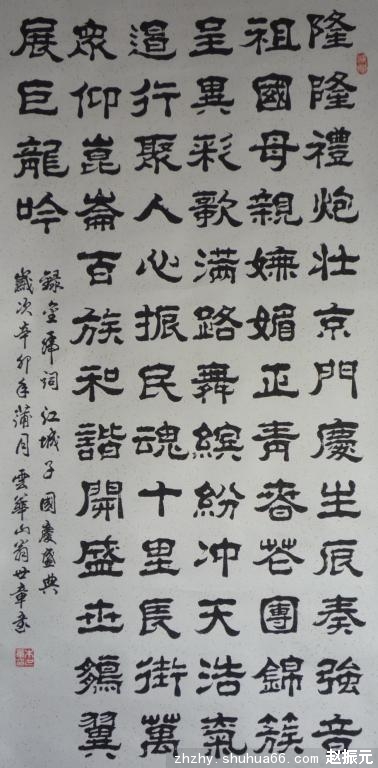 隆隆禮炮壯京門慶生辰奏強音
祖國母親嫵媚正青春花團錦簇
呈異彩歌滿路舞繽紛冲天浩氣
遏行聚人心振民魂十里長街萬
衆仰崑崙百族和諧開盛世翼
展巨龍吟
錄詞江城子國慶盛典
歲次辛卯年蒲月雲華山翁世章書
zhzhy.shuhua66.com 赵振元